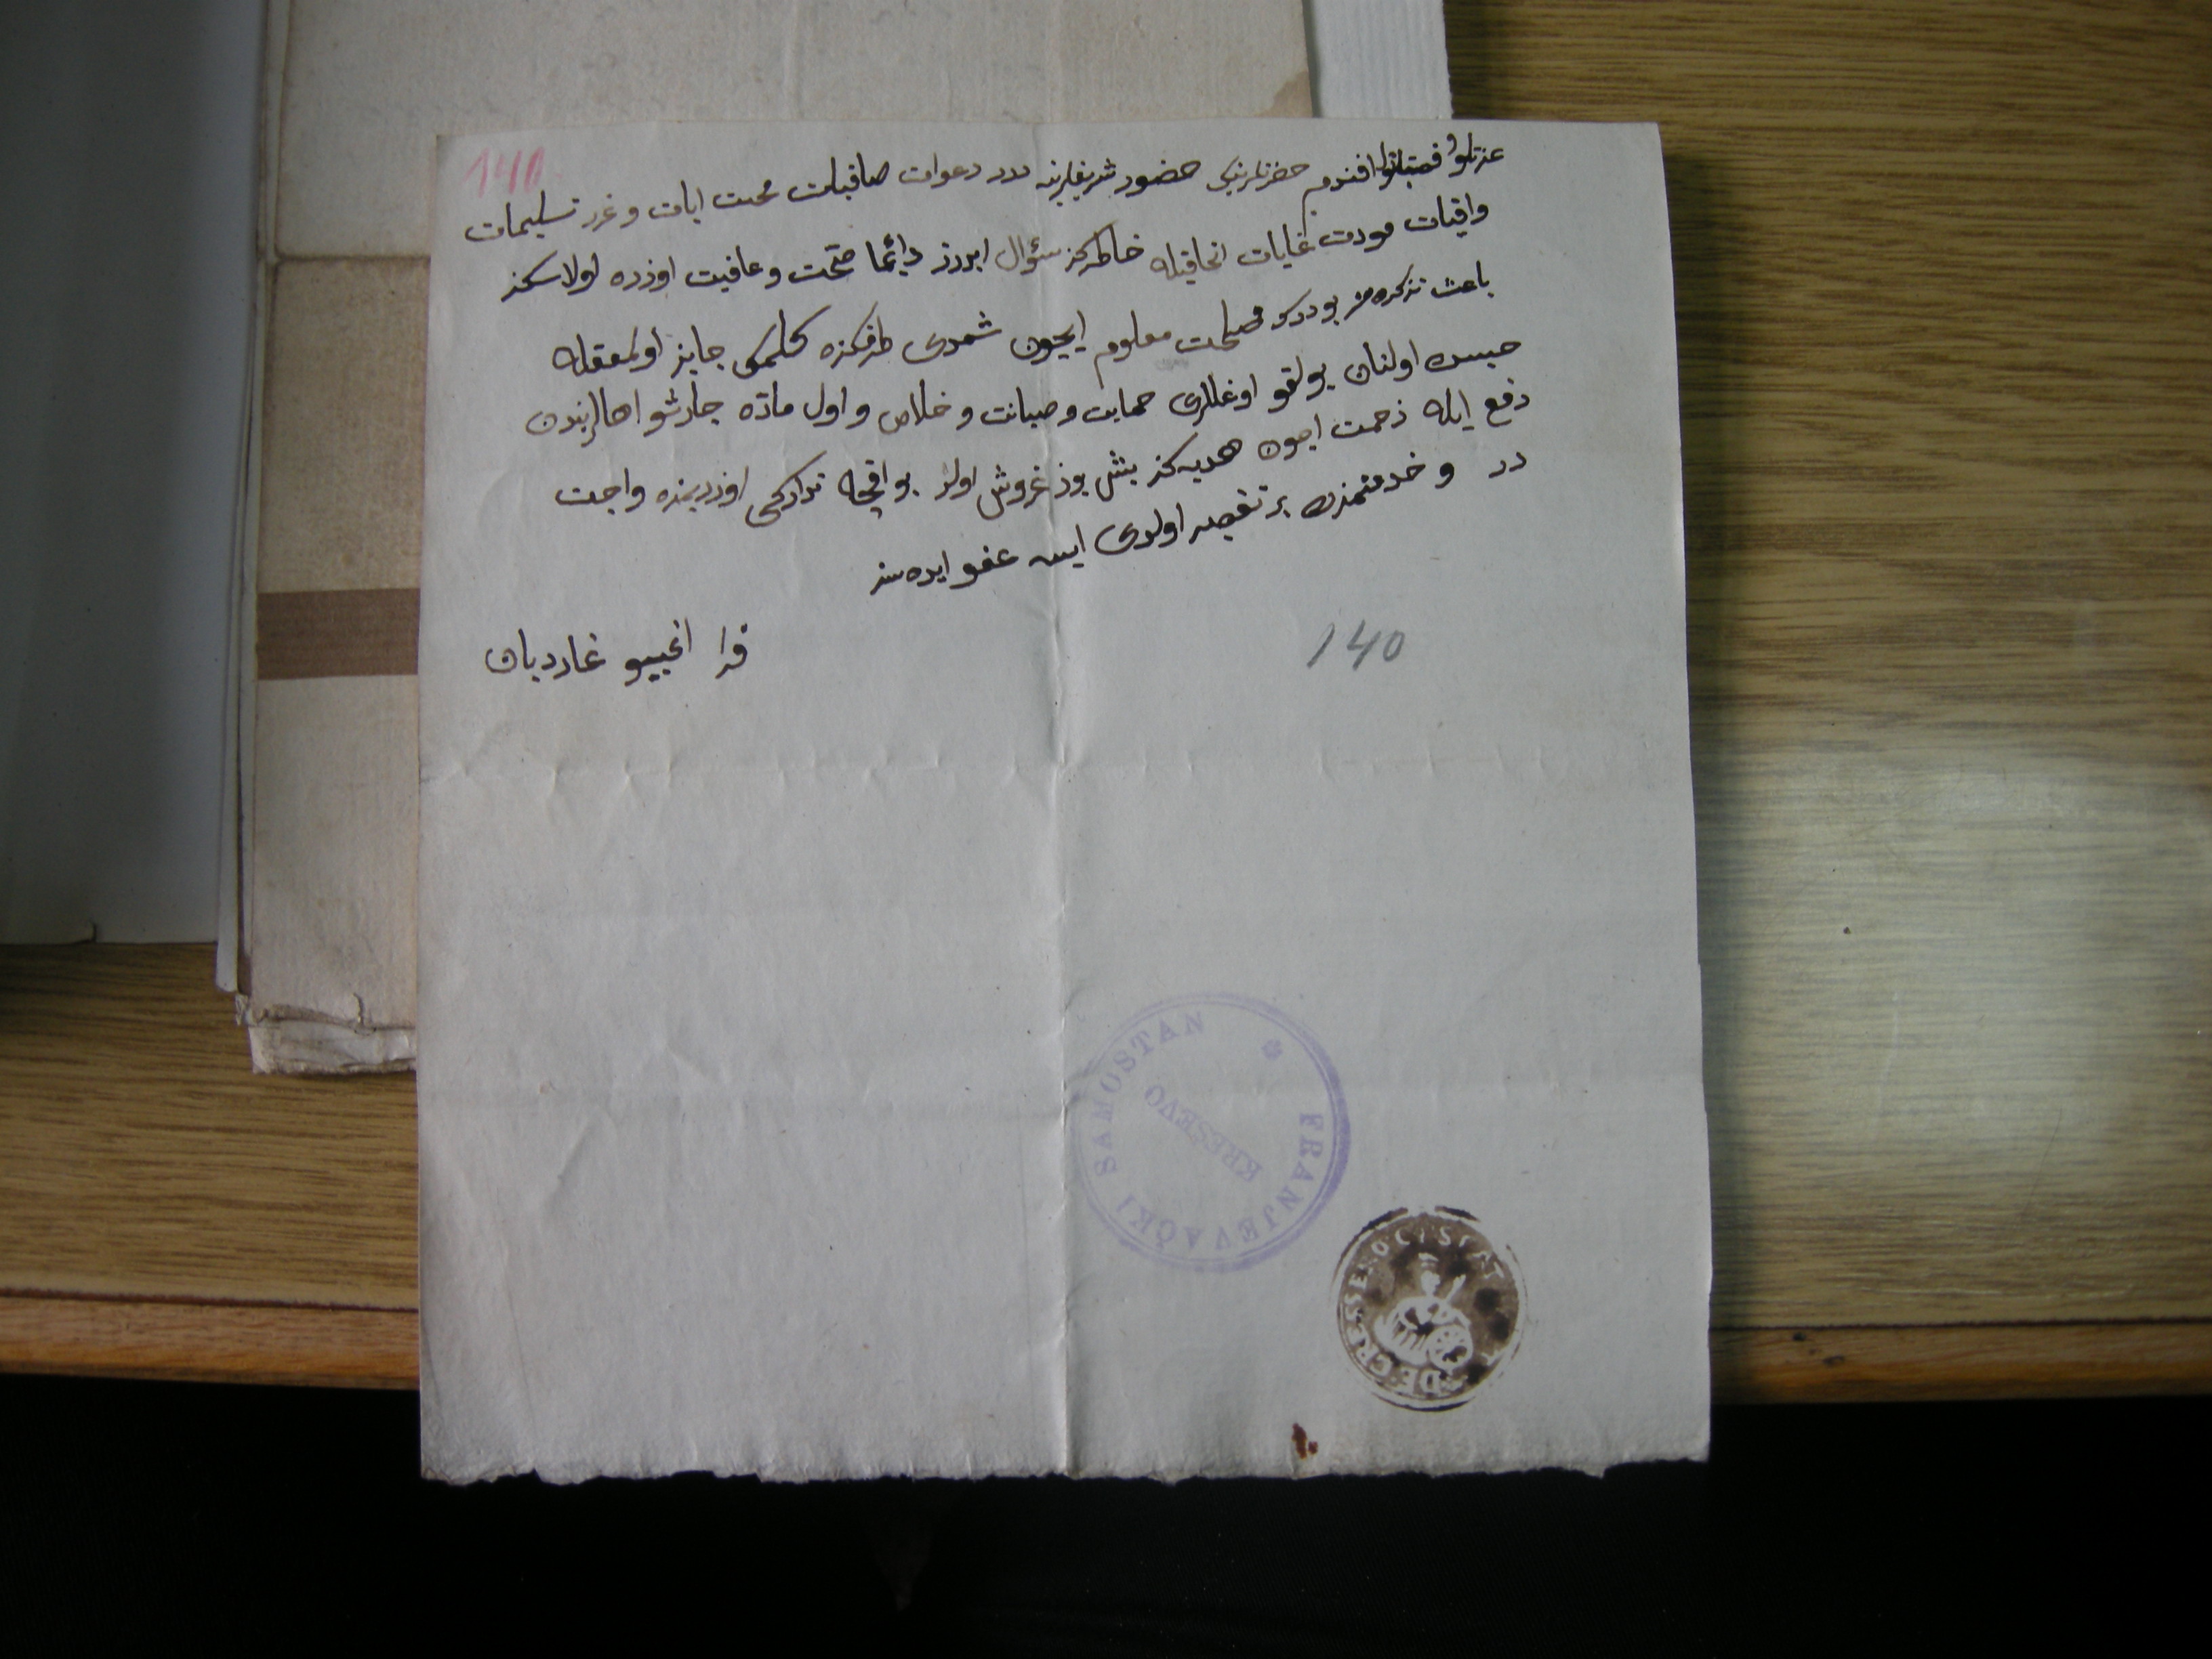 140
عزتلو فضيلتلو افندم حضرتلرينك حضور شريفلرينه درر دعوات صافيات محبت ايات و غرر تسليمات
وافيات مودت غايات اتحافيله خاطركز سؤال ايدرز دائما صحت و عافيت اوزره اولاسكز
باعث تذكره مز بودركه مصلحت معلوم ايچون شمدى طرفكزه كلمكى جايز اولمغله
حبسده اولنان يولقو اوغللرى حمايت و صيانت و خلاص و اول ماده چارشو اهاليندن
دفع ايله زحمت ايچون هديه كز بش يوز غروش اولور بو اقچه تداركى اوزريمزه واجب
در و خدمتمزده بر تقصير اولدى ايسه عفو ايده سز
فرا غارديان
140
FRANJEVAČKI SAMOSTAN
KREŠEVO
DE CRESSEVO